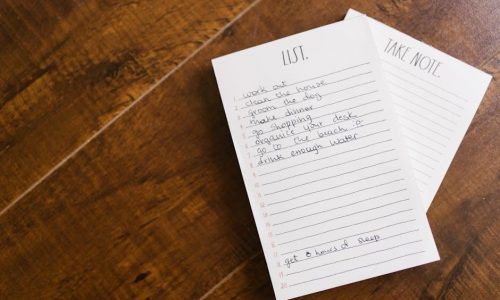 LIST.
1 work out
2 clean the house
3 groom the dog
4 make dinner
5 go shopping
6 organise your desk
7 go to the beach
8 drink enough water
get 8 hours of sleep
TAKE NOTE.